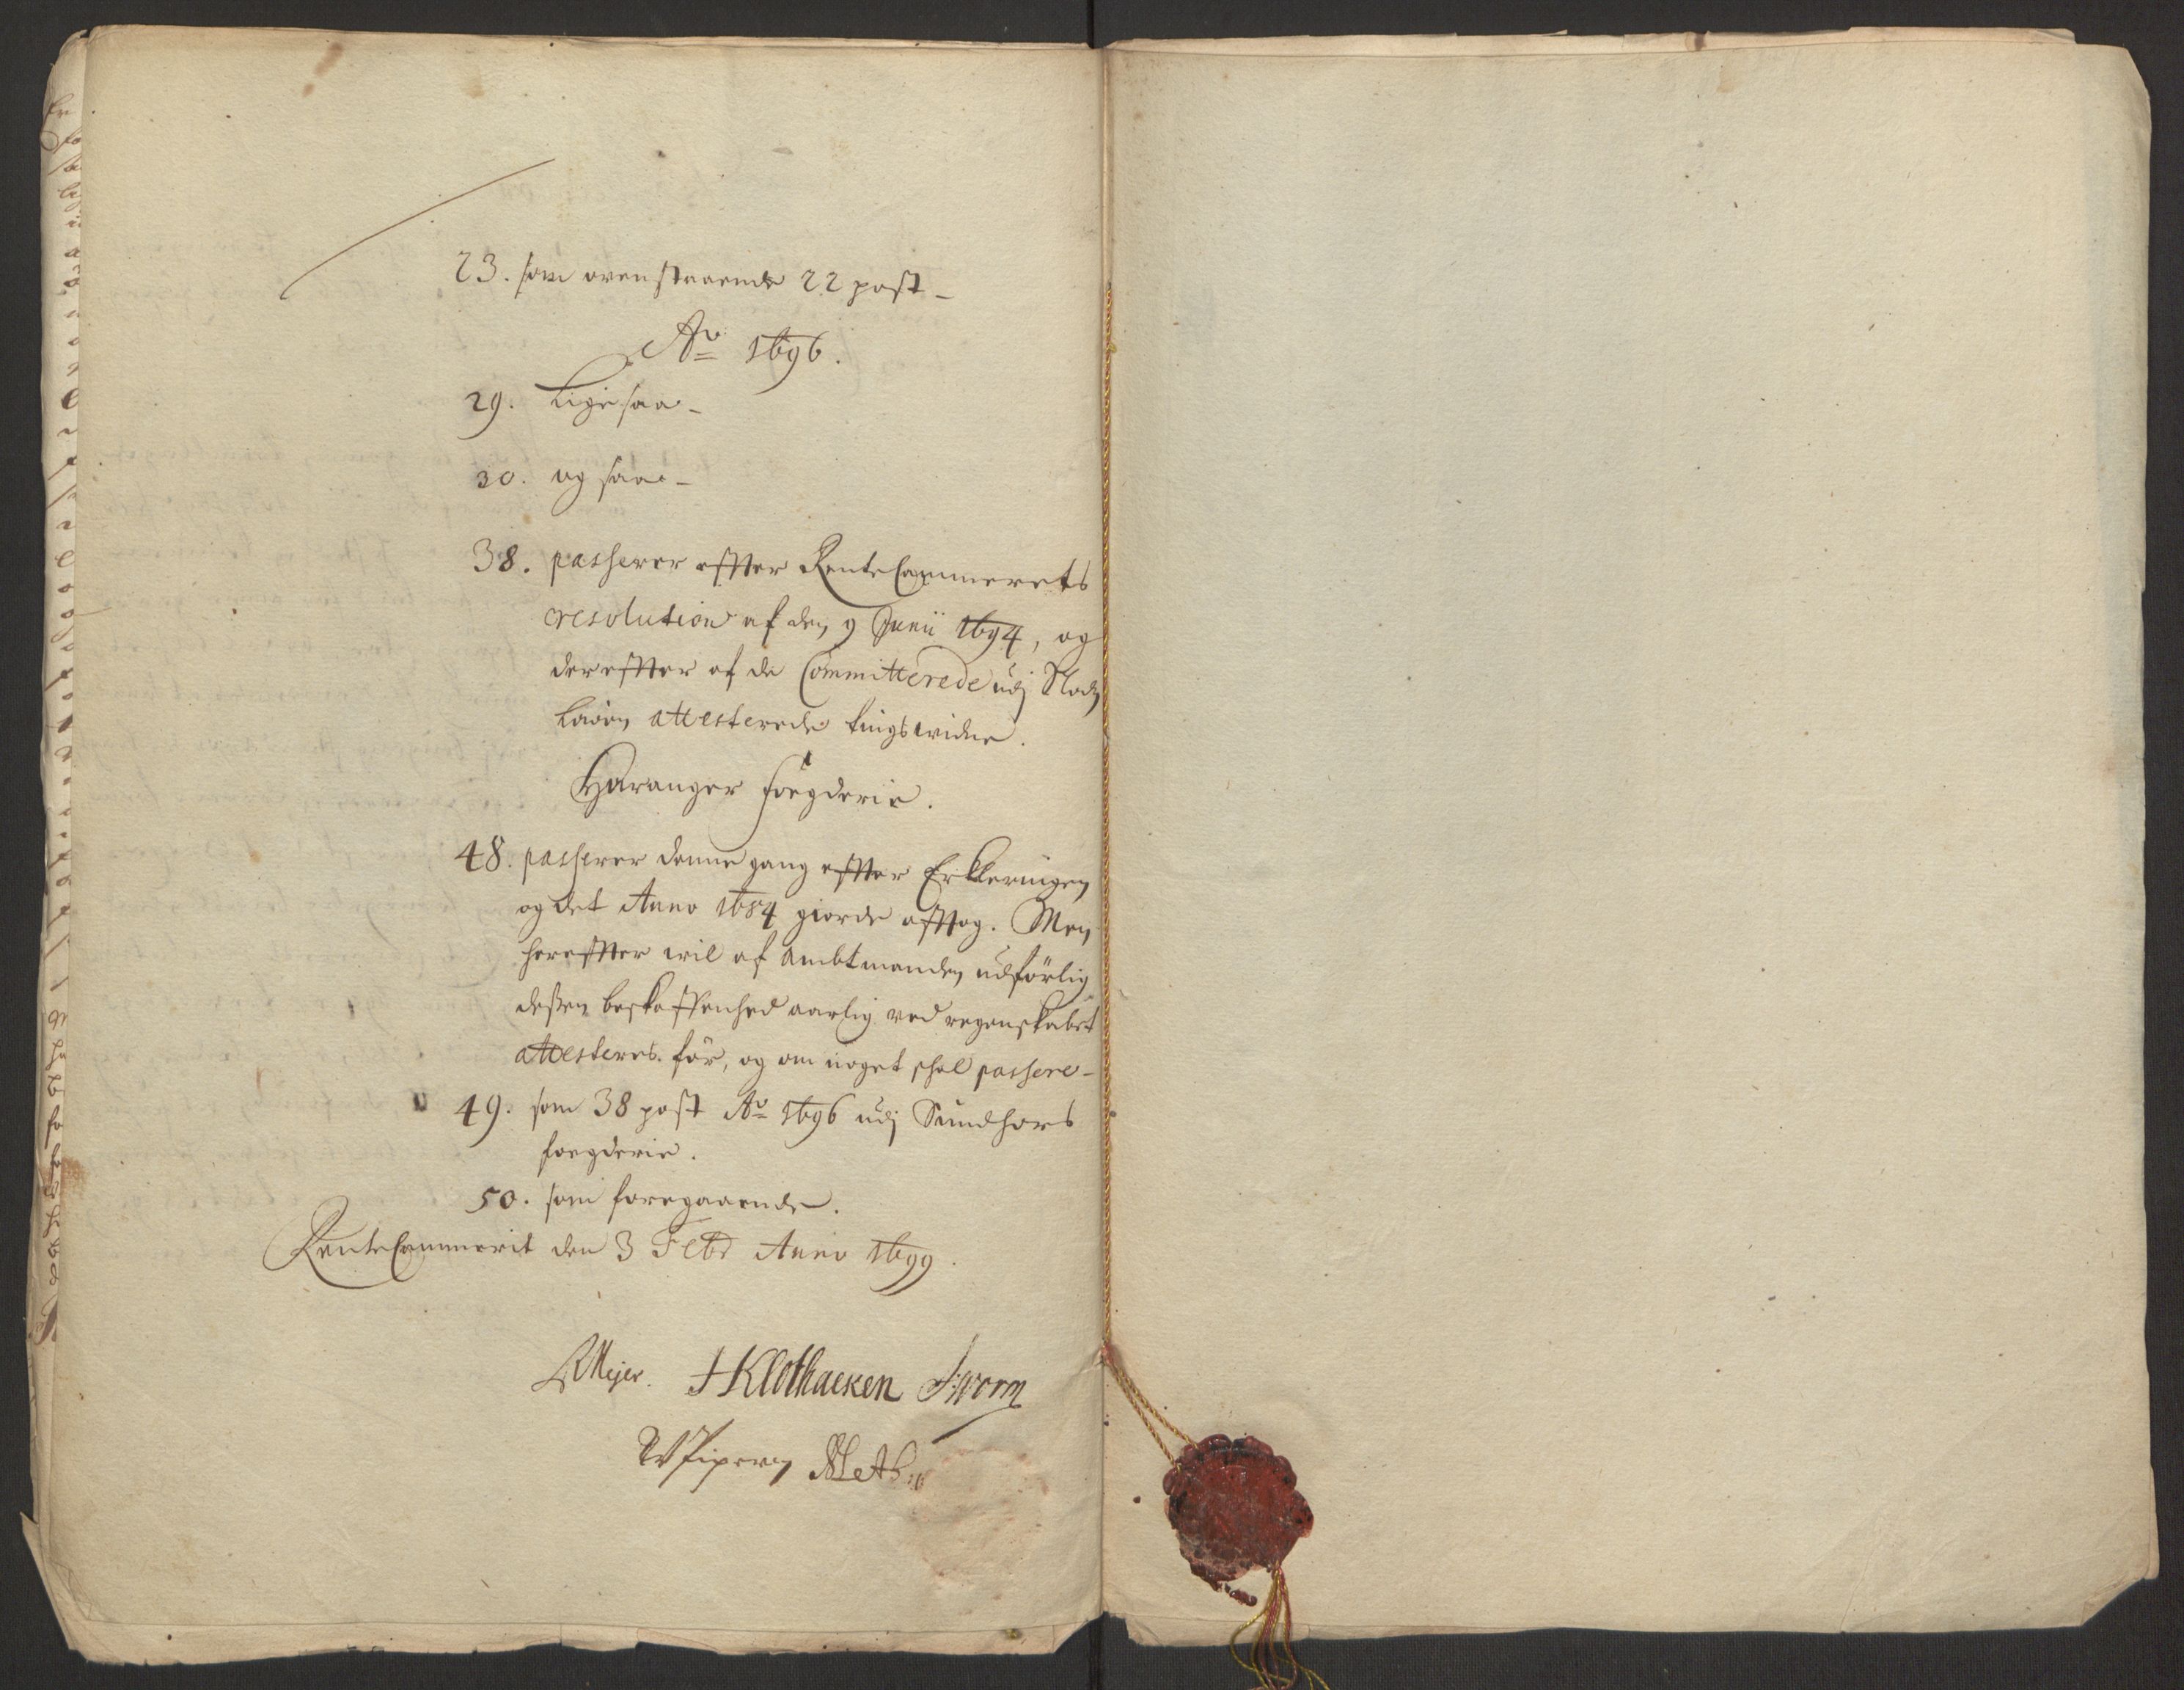 23. som ovenstaaende 22 post -
Ao 1696.
29. Ligesaa -
30. og saa -
38. passerer effter RenteCammerets
resolution af den 9 Junii 1694, og
dereffter af de Committerede udj
attesterede tingsvidne.
Haranger foegderie.
48. passerer denne gang effter Erkleringen
og det Anno 1684 giorde afftog. Men
hereffter vil af Ambtmanden udförlig
dessen beskaffenhed aarlig ved regenskabet
attesteres för, og om noget skal passere -
49. som 38 post Ao 1696 udj Sundhors
foegderie.
50. som foregaaende.
RenteCammerit den 3 Febr Anno 1699.
Mejer. HKlothacken Worm